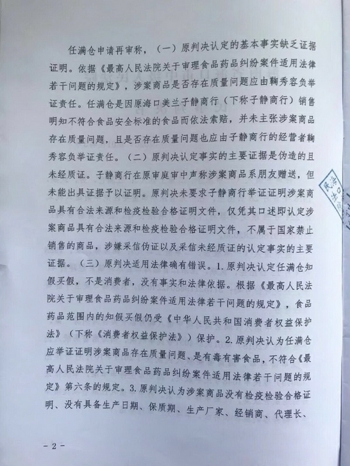 任满仓申请再审称，（一）原判决认定的基本事实缺乏证据
证明。依据《最高人民法院关于审理食品药品纠纷案件适用法律
若干问题的规定》，涉案商品是否存在质量问题应由鞠秀容负举
证责任。任满仓是因原海口美兰子静商行（下称子静商行）销售
明知不符合食品安全标准的食品而依法索赔，并未主张涉案商品
存在质量问题，且是否存在质量问题也应由子静商行的经营者鞠
秀容负举证责任。（二）原判决认定事实的主要证据是伪造的且
未经质证。子静商行在原审庭审中声称涉案商品系朋友赠送，但
未能出具证据予以证明。原判决未要求子静商行举证证明涉案商
品具有合法来源和检疫检验合格证明文件，仅凭其口述即认定涉
案商品具有合法来源和检疫检验合格证明文件，不属于国家禁止
销售的商品，涉嫌采信伪证以及采信未经质证的认定事实的主要
证据。（三）原判决适用法律确有错误。1.原判决认定任满仓知
假买假，不是消费者，没有事实和法律依据。根据《最高人民法
院关于审理食品药品纠纷案件适用法律若干问题的规定》，食品
药品范围内的知假买假仍受《中华人民共和国消费者权益保护
法》（下称《消费者权益保护法》）保护。2.原判决认为任满仓
应举证证明涉案商品存在质量问题、是有毒有害食品，不符合《最
高人民法院关于审理食品药品纠纷案件适用法律若干问题的规
定》第六条的规定。3.原判决认为涉案商品没有检疫检验合格证
明、没有具备生产日期、保质期、生产厂家、经销商、代理长、
- 2 -